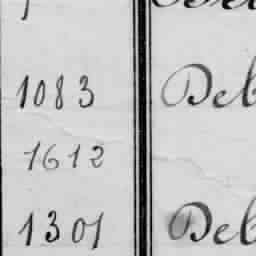 1083 Deb
1612
1301 Deb